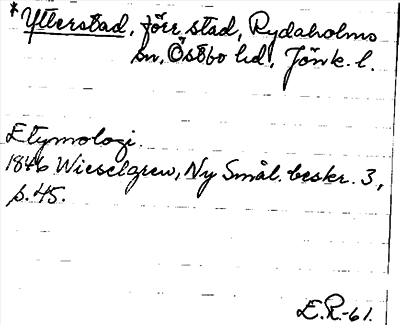 *Ytterstad, förr stad, Rydaholms
sn, Östbo hd, Jönk. l.
Etymologi.
1846 Wieselgren, Ny Smål. beskr. 3,
s. 45.
E.R.-61.